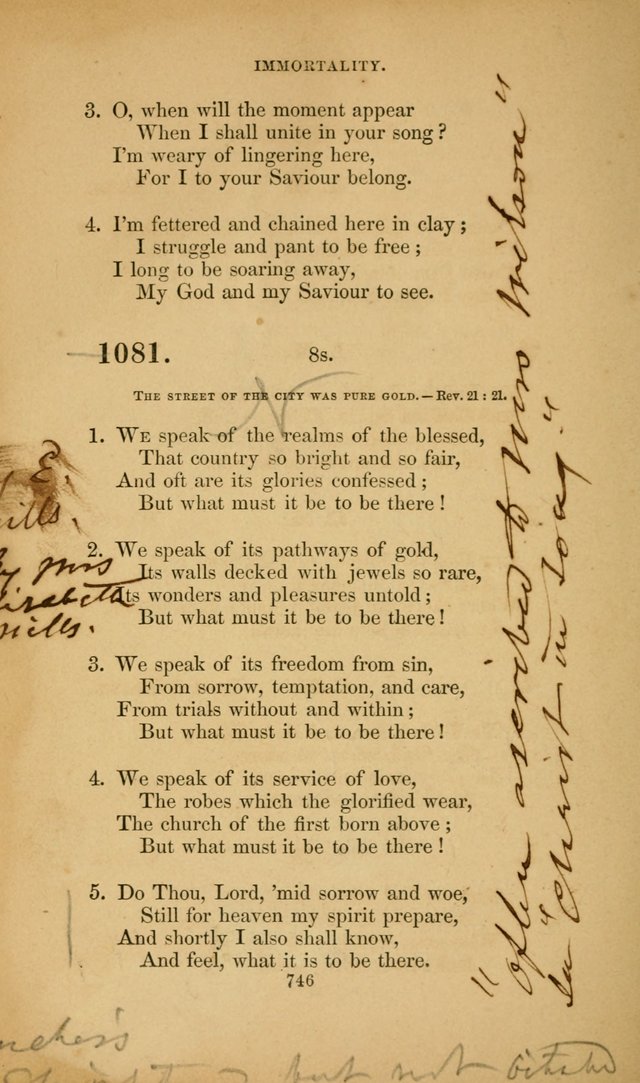 IMMORTALITY.
3. O, when will the moment appear
When I shall unite in your song?
I'm weary of lingering here,
For I to your Saviour belong.
4. I'm fettered and chained here in clay;
I struggle and pant to be free;
I long to be soaring away,
My God and my Saviour to see.
1081. 8s.
THE STREET OF THE CITY WAS PURE GOLD.—Rev. 21: 21.
1. WE speak of the realms of the blessed,
That country so bright and so fair,
And oft are its glories confessed;
But what must it be to be there!
2. We speak of its pathways of gold,
Its walls decked with jewels so rare,
Its wonders and pleasures untold;
But what must it be to be there!
3. We speak of its freedom from sin,
From sorrow, temptation, and care,
From trials without and within;
But what must it be to be there!
4. We speak of its service of love,
The robes which the glorified wear,
The church of the first born above;
But what must it be to be there!
5. Do Thou, Lord, 'mid sorrow and woe,
Still for heaven my spirit prepare,
And shortly I also shall know,
And feel, what it is to be there.
746
E.
ills.
Mrs
lizabeth
Mills.
"often ascribed to Miss Wilson"
in "Christ in Song."
but not